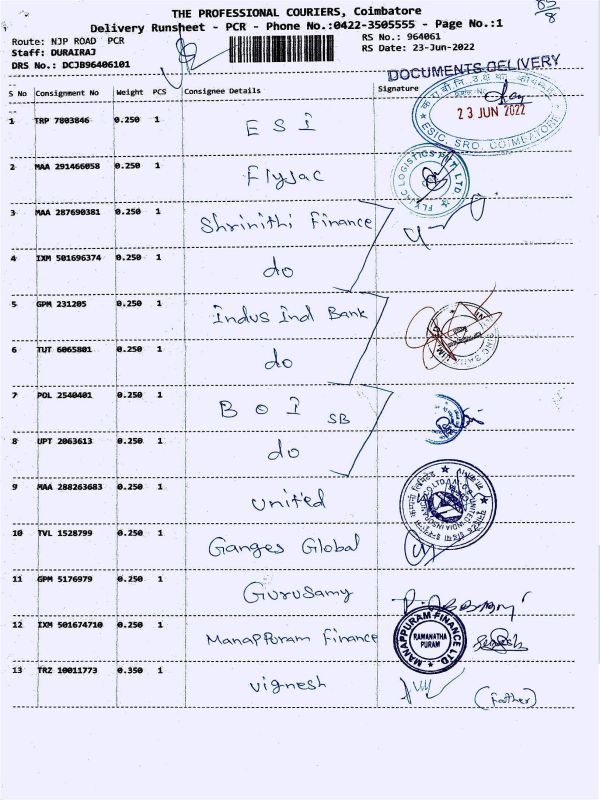 THE PROFESSIONAL COURIERS, Coimbatore
Delivery Runsheet - PCR - Phone No.:0422-3505555 - Page No.:1
Route: NJP ROAD PCR
RS No.: 964061
Staff: DURAIRAJ
RS Date: 23-Jun-2022
DRS No.: DCJB96406101
DOCUMENTS DELIVERY
S No Consignment No Weight PCS Consignee Details Signature
23 JUN 2022
ESIC, SRO, COIMBATORE
1 TRP 7803846 0.250 1 E S I
2 MAA 291466058 0.250 1 Flyjac
FLYJAC LOGISTICS PVT. LTD.
3 MAA 287690381 0.250 1 Shrinithi Finance
4 IXM 501696374 0.250 1 do
5 GPM 231205 0.250 1 Indus Ind Bank
6 TUT 6065801 0.250 1 do
7 POL 2540401 0.250 1 B O I SB
8 UPT 2063613 0.250 1 do
9 MAA 288263683 0.250 1 united
10 TVL 1528799 0.250 1 Ganges Global
11 GPM 5176979 0.250 1 Gurusamy
12 IXM 501674710 0.250 1 Manappuram Finance
MANAPPURAM FINANCE LTD.
RAMANATHA
PURAM
13 TRZ 10011773 0.350 1 vignesh
(Father)